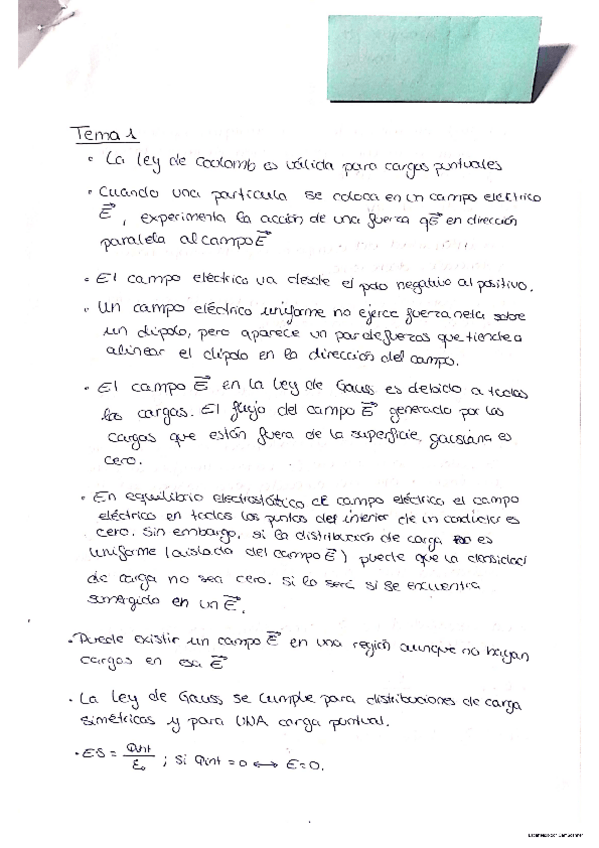 Tema 1
• La ley de Coolomb es válida para cargas puntuales
• Cuando una partícula se coloca en un campo eléctrico
E⃗, experimenta la acción de una fuerza qE⃗ en dirección
paralela al campo E⃗
• El campo eléctrico va desde el polo negativo al positivo.
• Un campo eléctrico uniforme no ejerce fuerza neta sobre
un dipolo, pero aparece un par de fuerzas que tiende a
alinear el dipolo en la dirección del campo.
• El campo E⃗ en la ley de Gauss es debido a todas
las cargas. El flujo del campo E⃗ generado por las
cargas que están fuera de la superficie gausiana es
cero.
• En equilibrio electrostático el campo eléctrico, el campo
eléctrico en todos los puntos del interior de un conductor es
cero. Sin embargo, si la distribución de carga es
uniforme (aislado del campo E⃗) puede que la densidad
de carga no sea cero. Si lo será si se encuentra
sumergido en un E⃗.
• Puede existir un campo E⃗ en una región aunque no hayan
cargas en esa E⃗
• La ley de Gauss se cumple para distribuciones de carga
simétricas y para UNA carga puntual.
• ES = Qint/ε₀ ; si Qint = 0 ↔ E=0.